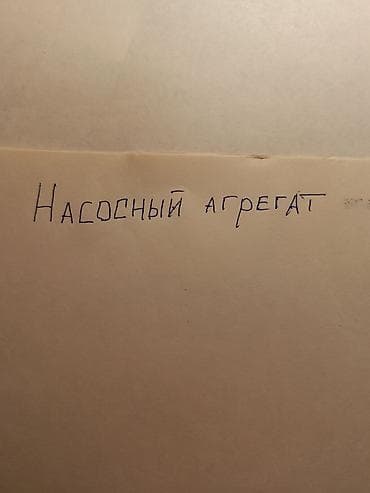 Насосный агрегат